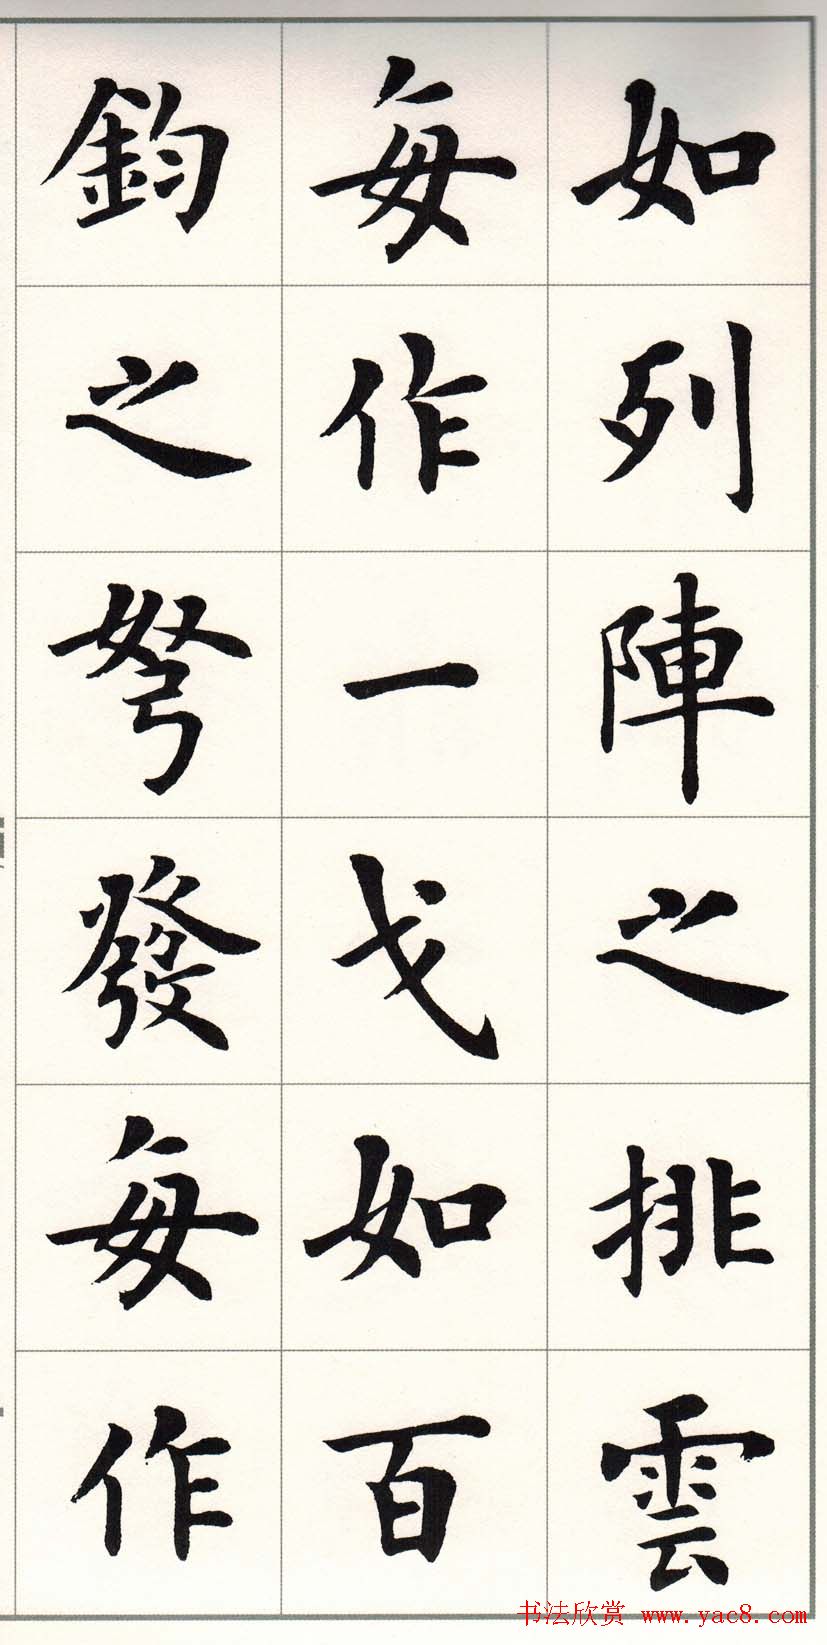 如列陣之排雲
每作一戈如百
鈞之弩發每作
书法欣赏 www.yac8.com